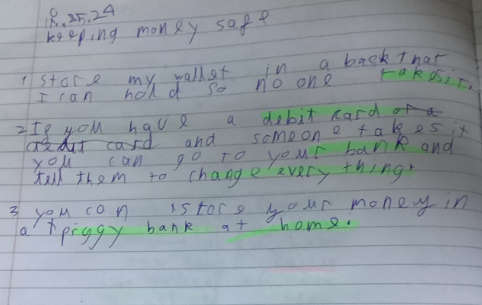 keeping money safe
1 store my wallet in a back that
I can hold so no one takes it.
2 If you have a debit card or a
credit card and someone takes it
you can go to your bank and
tell them to change every thing.
3 you can store your money in
a piggy bank at home.